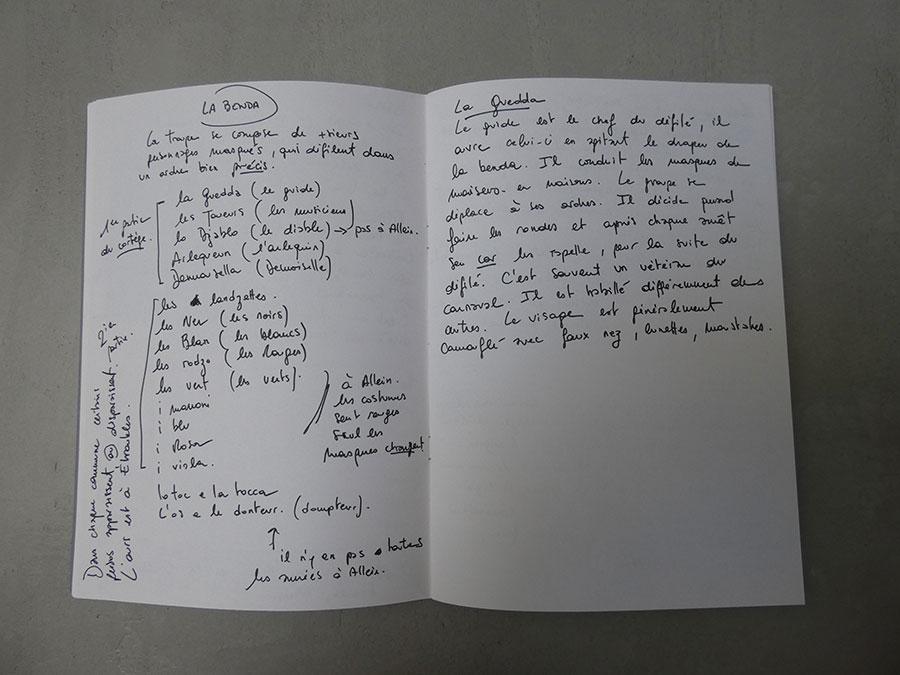 LA BENDA
La troupe se compose de +sieurs
personnages masqués, qui défilent dans
un ordre bien précis.
1ère partie
du cortège.
la Guedda (le guide)
les Toveurs (les musiciens)
lo Djablo (le diable) → pas à Allein.
Arlequeun (l'arlequin)
Demoisella (Demoiselle)
2e partie
les landzettes.
les Ner (les noirs)
les Blan (les blancs)
les rodzo (les Rouges)
les vert (les verts).
i marroni
i blu
i Rosa
i viola.
à Allein.
les costumes
sont rouges
seul les
masques changent
lo toc e la tocca
L'os e le donteur. (dompteur).
↑
il n'y en pas toutes
les années à Allein.
Dans chaque commune certains
persos apparaissent ou disparaissent.
L'ours est à Etroubles.
La Guedda
Le guide est le chef du défilé, il
ouvre celui-ci en agitant le drapeau de
la benda. Il conduit les masques de
maisons en maisons. Le groupe se
déplace à ses ordres. Il décide quand
faire les rondes et après chaque arrêt
son cor les rapelle, pour la suite du
défilé. C'est souvent un vétéran du
carnaval. Il est habillé différemment des
autres. Le visage est généralement
camouflé avec faux nez, lunettes, moustaches.